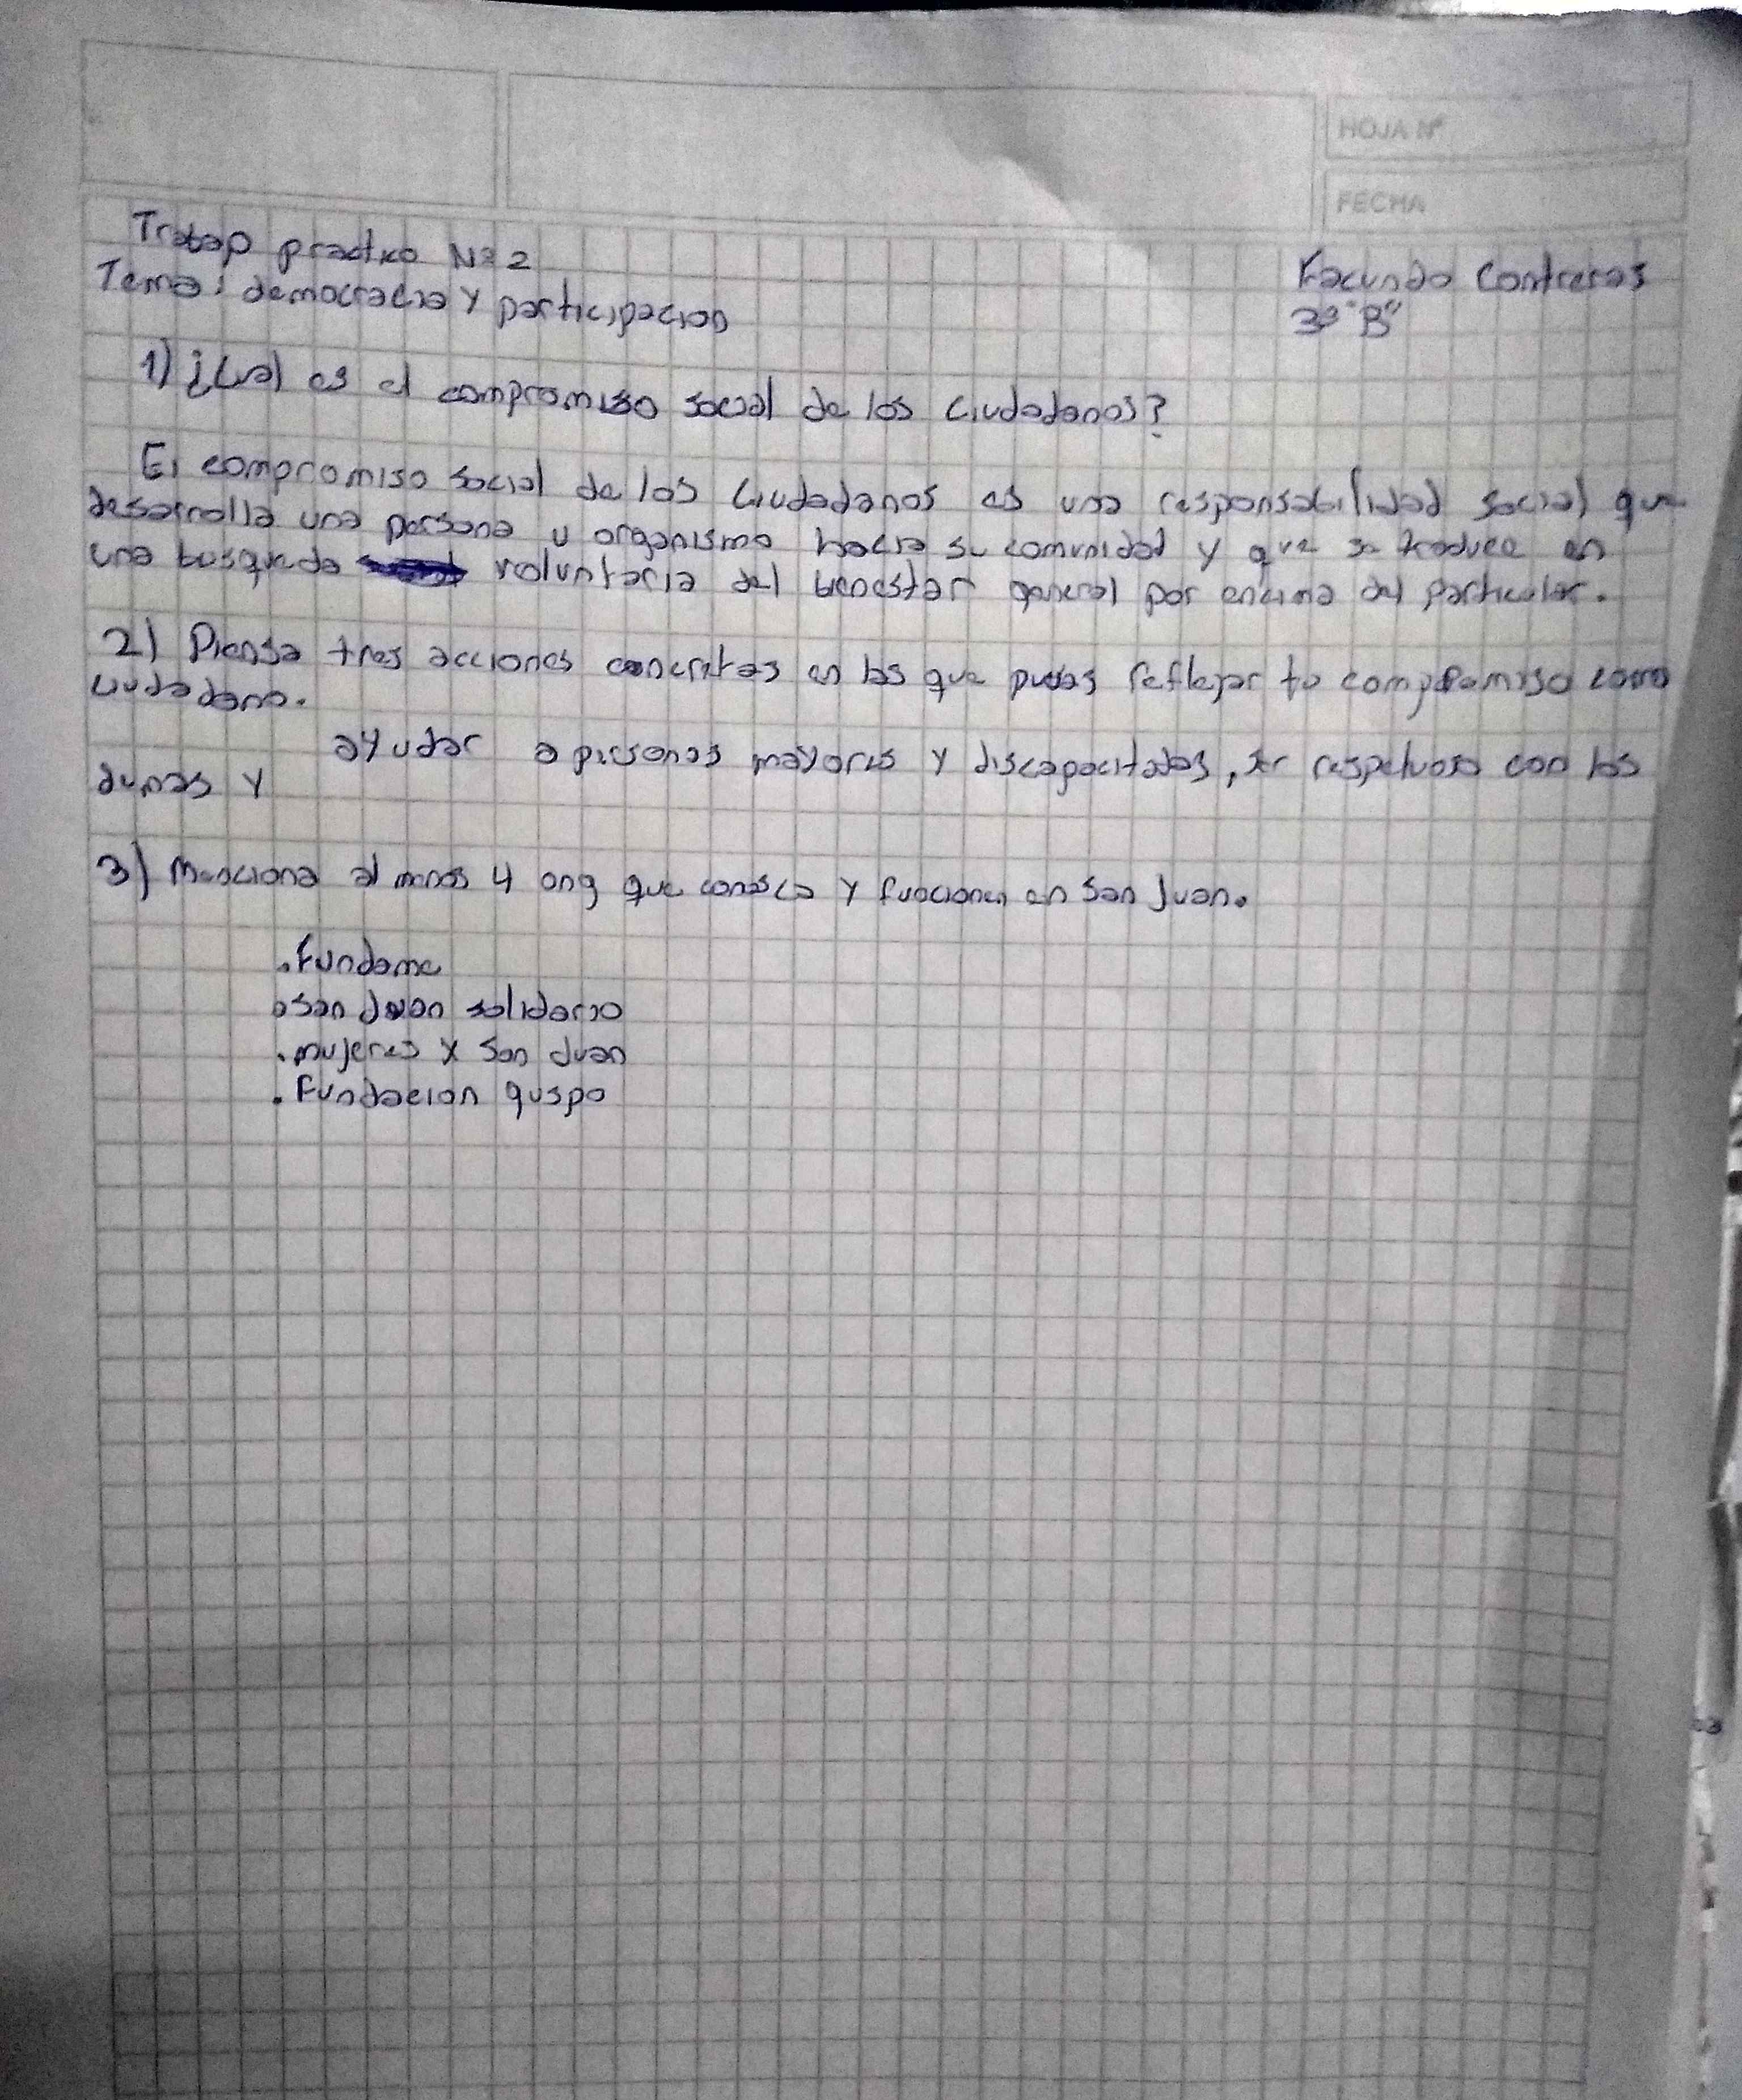 HOJA Nº
FECHA
Trabajo practico Nº 2
Facundo Contreras
Tema: democracia y participacion
3º "B"
1) ¿Cual es el compromiso social de los ciudadanos?
El compromiso social de los ciudadanos es una responsabilidad social que
desarrolla una persona u organismo hacia su comunidad y que se traduce en
una busqueda voluntaria del bienestar general por encima del particular.
2) Piensa tres acciones concretas en las que puedas reflejar tu compromiso como
ciudadano.
ayudar a personas mayores y discapacitadas, ser respetuoso con los
demas y
3) Menciona al menos 4 ong que conosca y funcionen en San Juan.
. Fundame
. San Juan solidario
. mujeres x San Juan
. Fundacion quspo